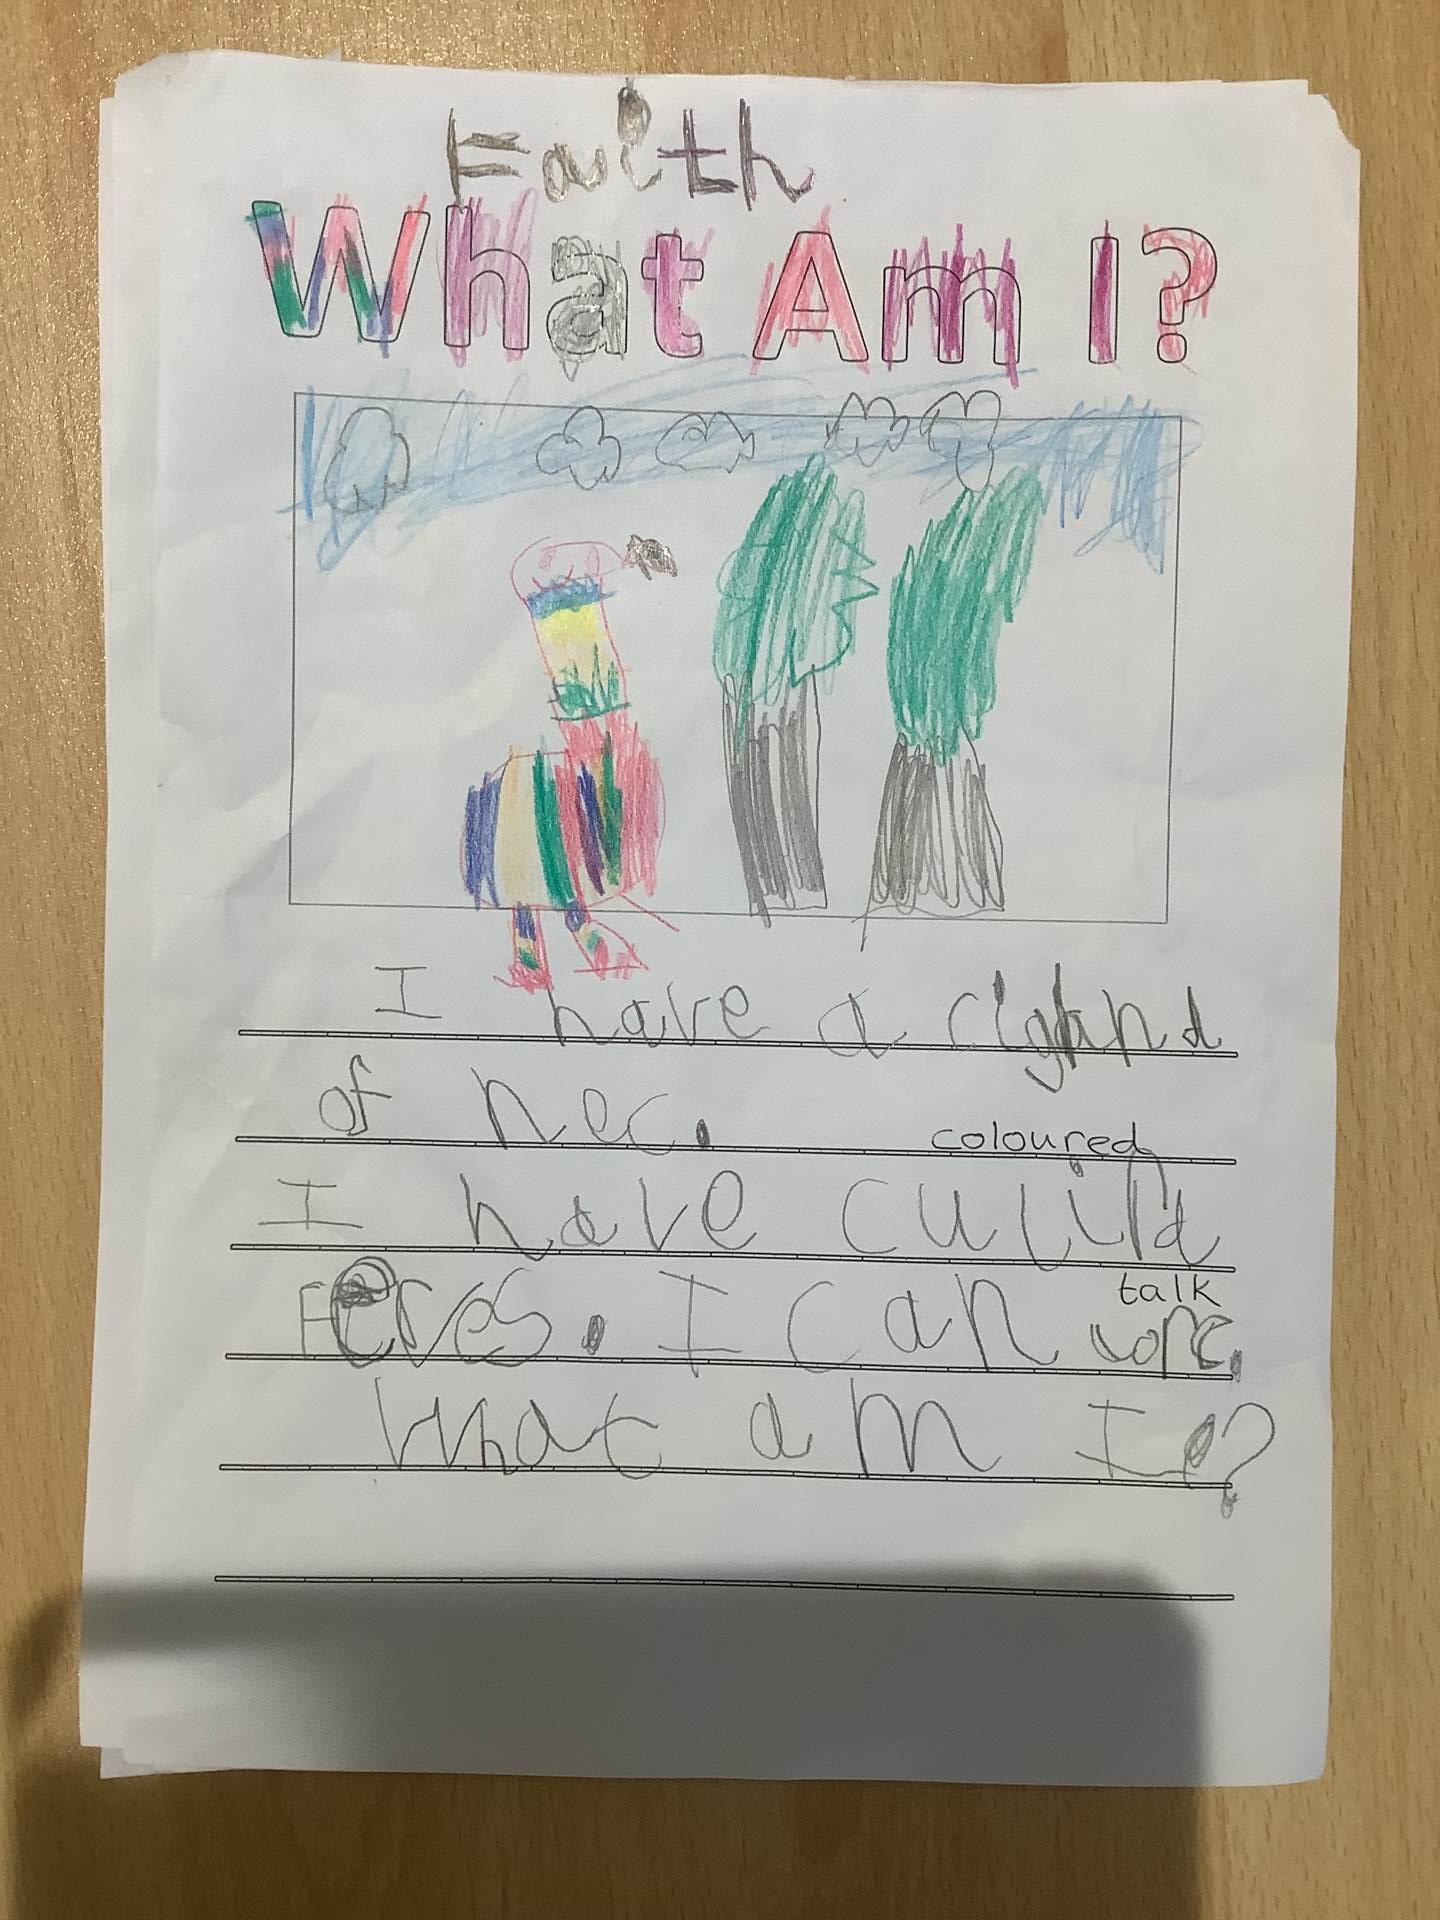 Faith
What Am I?
I have a righnd
of nec.
coloured
I have cuiild
talk
Feres. I can worc.
What am I?